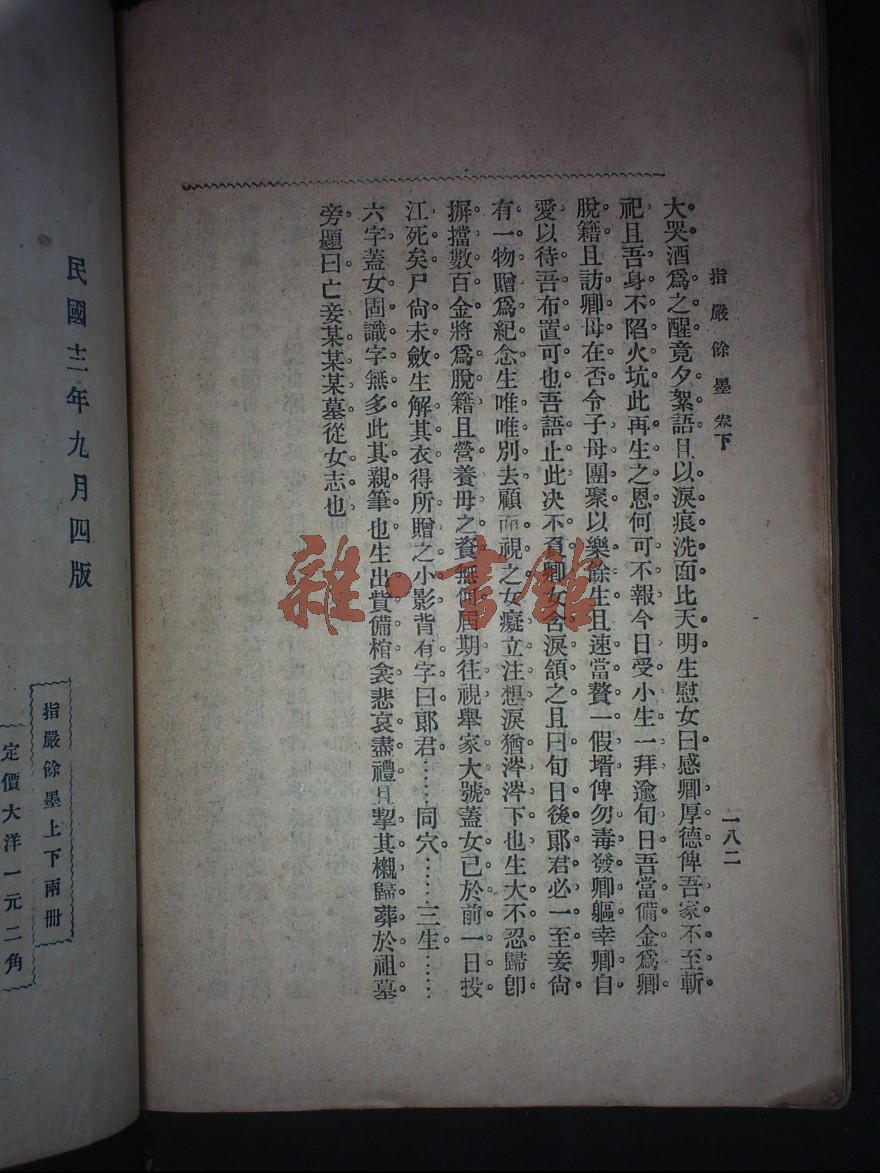 指嚴餘墨 卷下
一八二
大哭酒爲之醒竟夕絮語且以淚痕洗面比天明生慰女曰感卿厚德俾吾家不至斬
祀且吾身不陷火坑此再生之恩何可不報今日受小生一拜逾旬日吾當備金爲卿
脫籍且訪卿母在否令子母團聚以樂餘生且速當贅一假壻俾勿毒發卿軀幸卿自
愛以待吾布置可也吾語止此决不負卿女含淚頷之且曰旬日後郞君必一至妾尙
有一物贈爲紀念生唯唯別去顧而視之女癡立注想淚猶涔涔下也生大不忍歸卽
摒擋數百金將爲脫籍且營養母之資無何屆期往視舉家大號蓋女已於前一日投
江死矣尸尙未斂生解其衣得所贈之小影背有字曰郞君……同穴……三生……
六字蓋女固識字無多此其親筆也生出貲備棺衾悲哀盡禮且挈其櫬歸葬於祖墓
旁題曰亡妾某某某墓從女志也
民國十二年九月四版
指嚴餘墨上下兩冊
定價大洋一元二角
雜·書館